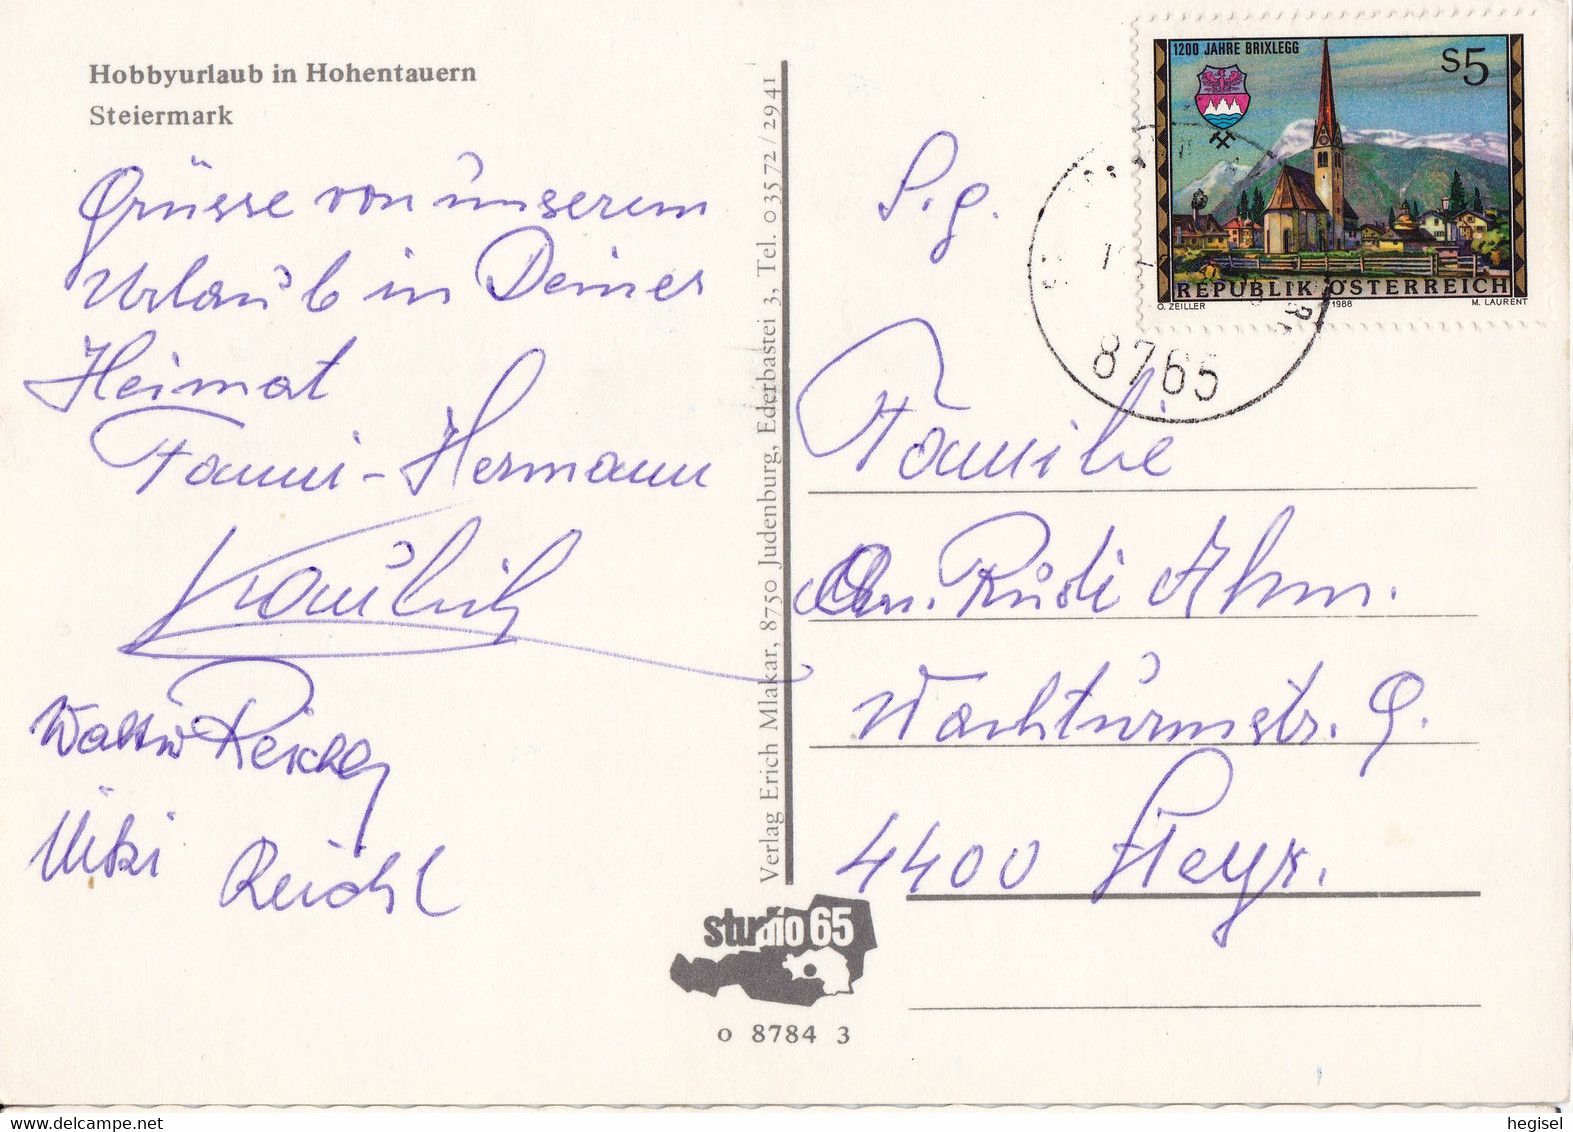 Hobbyurlaub in Hohentauern
Steiermark
Grüsse von unserem
Urlaub in Deiner
Heimat
Fanni - Hermann
Walter Reichl
Miki Reichl
Verlag Erich Mlakar, 8750 Judenburg, Ederbastei 3, Tel. 03572/2941
studio 65
o 8784 3
1200 JAHRE BRIXLEGG
S5
REPUBLIK ÖSTERREICH
O. ZEILLER 1988 M. LAURENT
8765
S.g.
Familie
Rudi
Wachturmstr. 9.
4400 Steyr.
hegisel